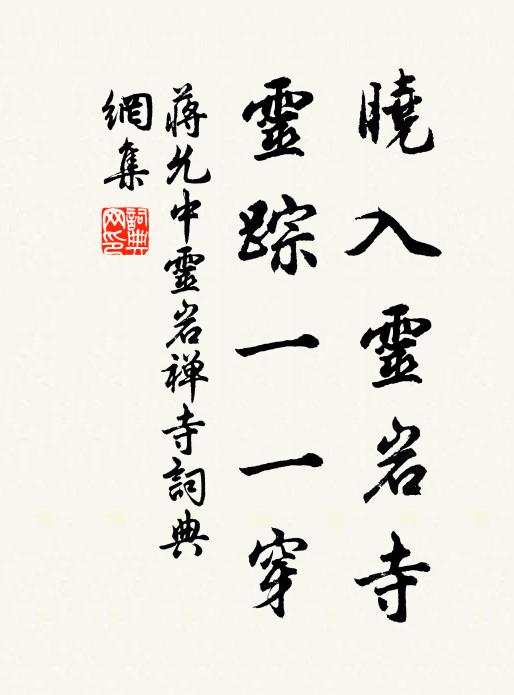 曉入靈岩寺
靈踪一一穿
蔣允中靈岩禅寺詞典
網集
詞典
网印